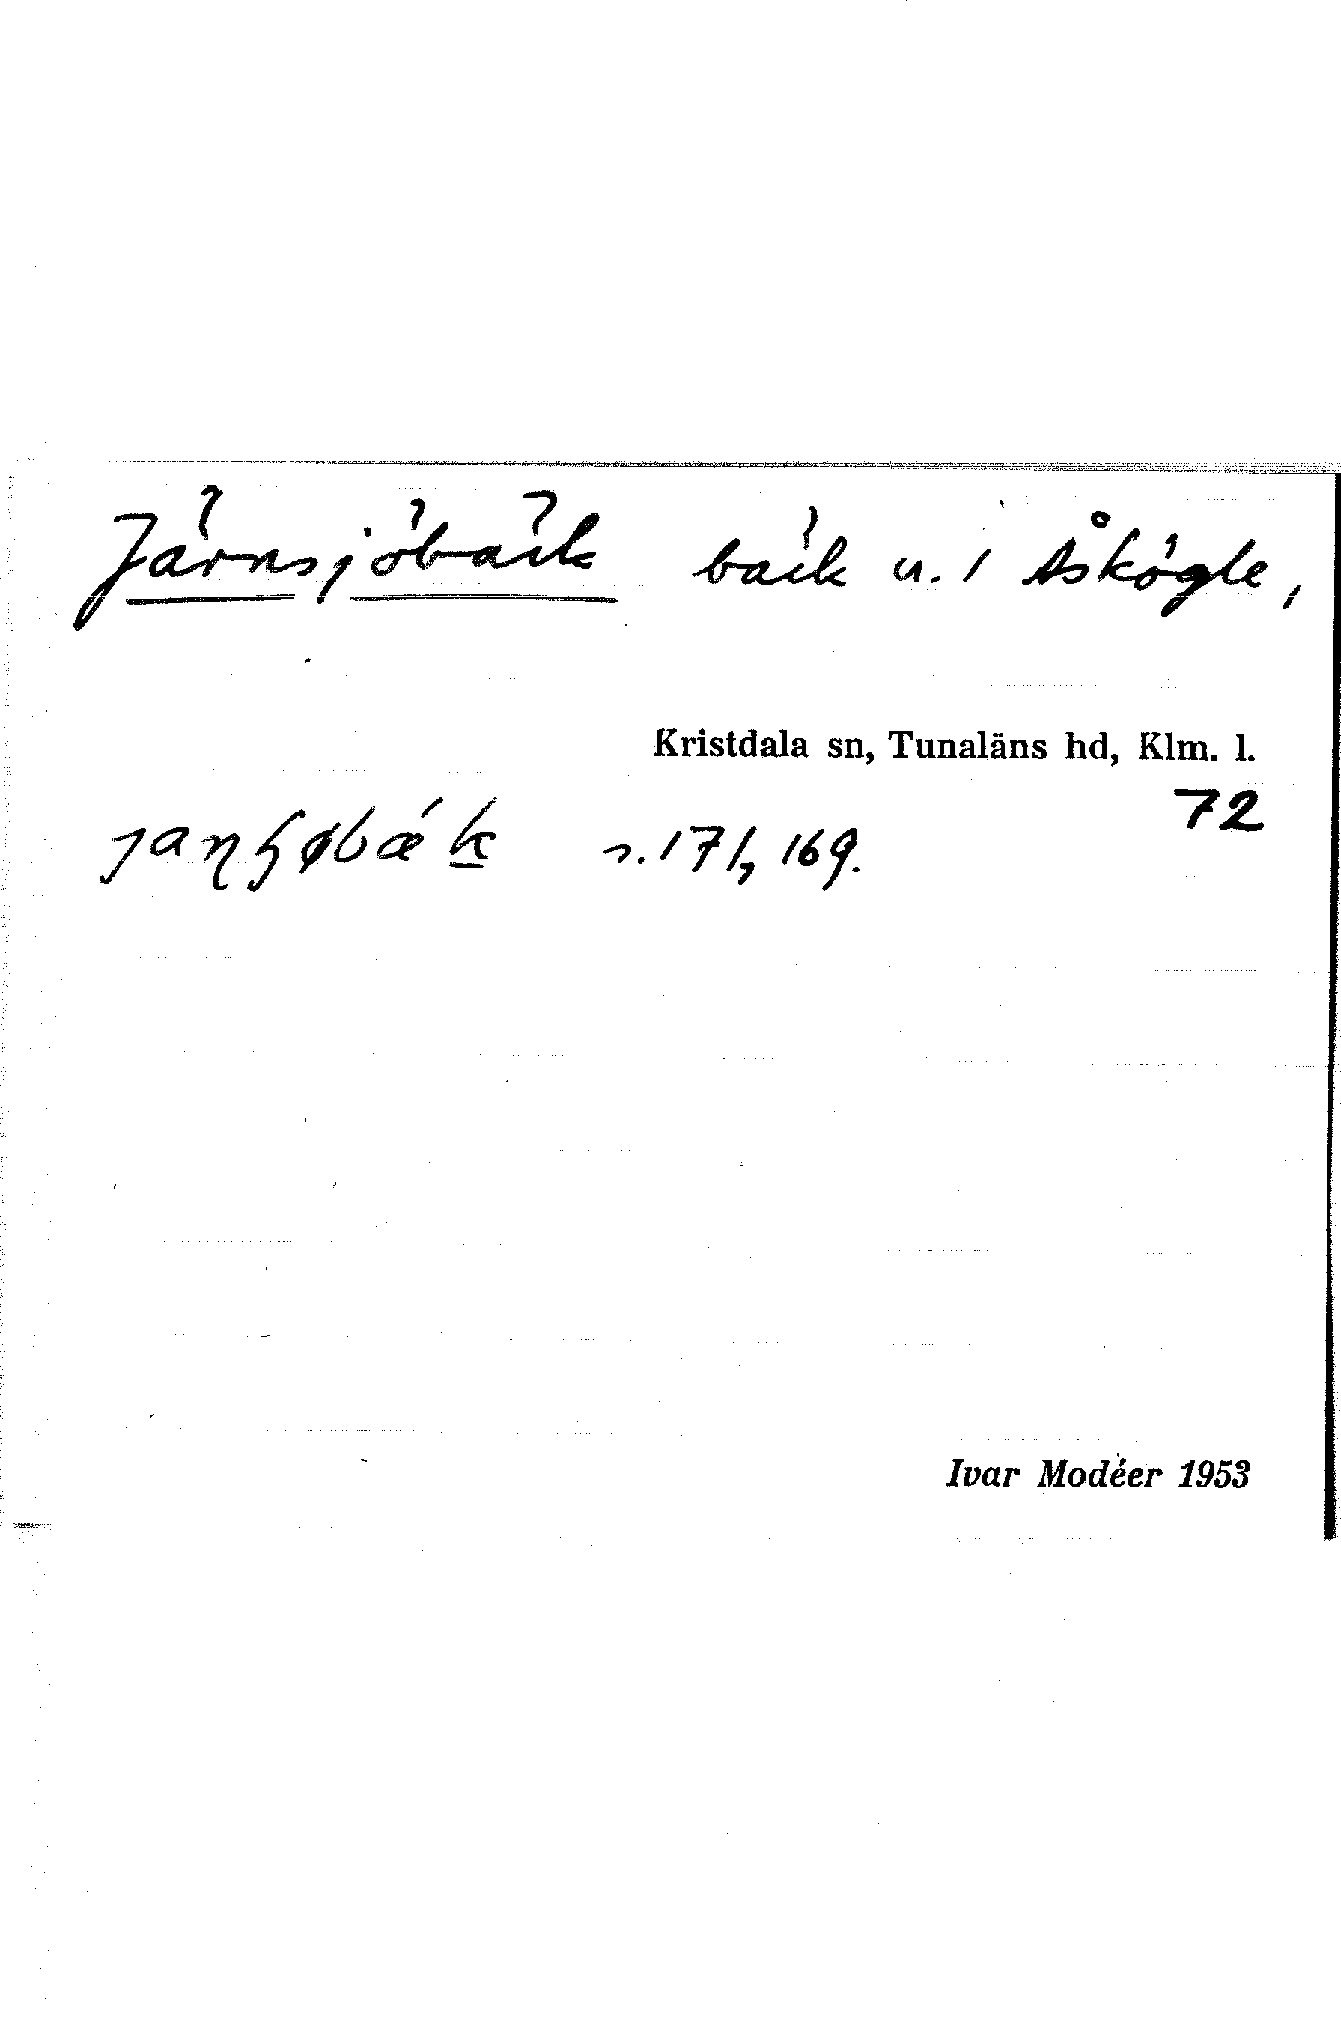 Järnsjöbäck bäck u. 1 Åskögle,
Kristdala sn, Tunaläns hd, Klm. l.
72
s. 171, 169.
Ivar Modéer 1953